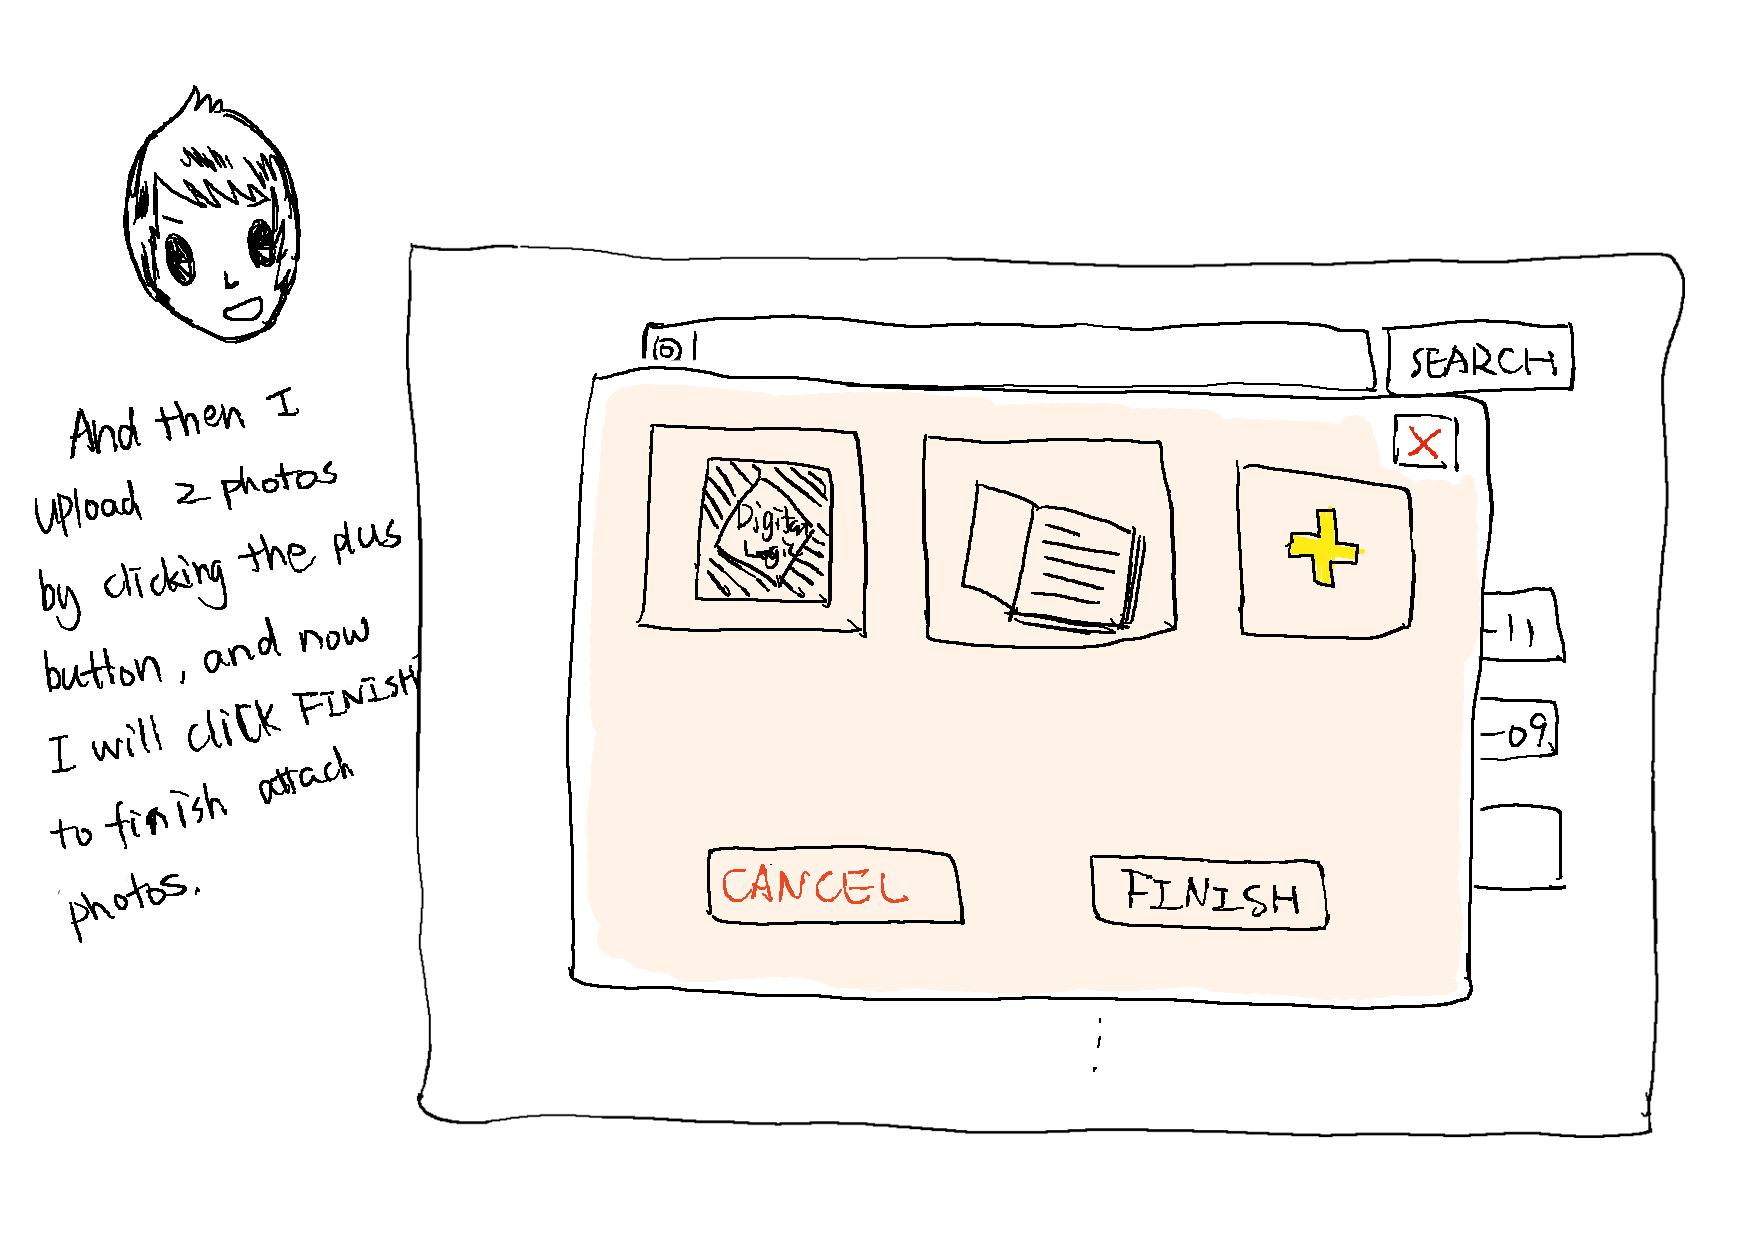 And then I
upload 2 photos
by clicking the plus
button, and now
I will click FINISH
to finish attach
photos.
SEARCH
X
Digital
Logic
-11
-09
CANCEL
FINISH